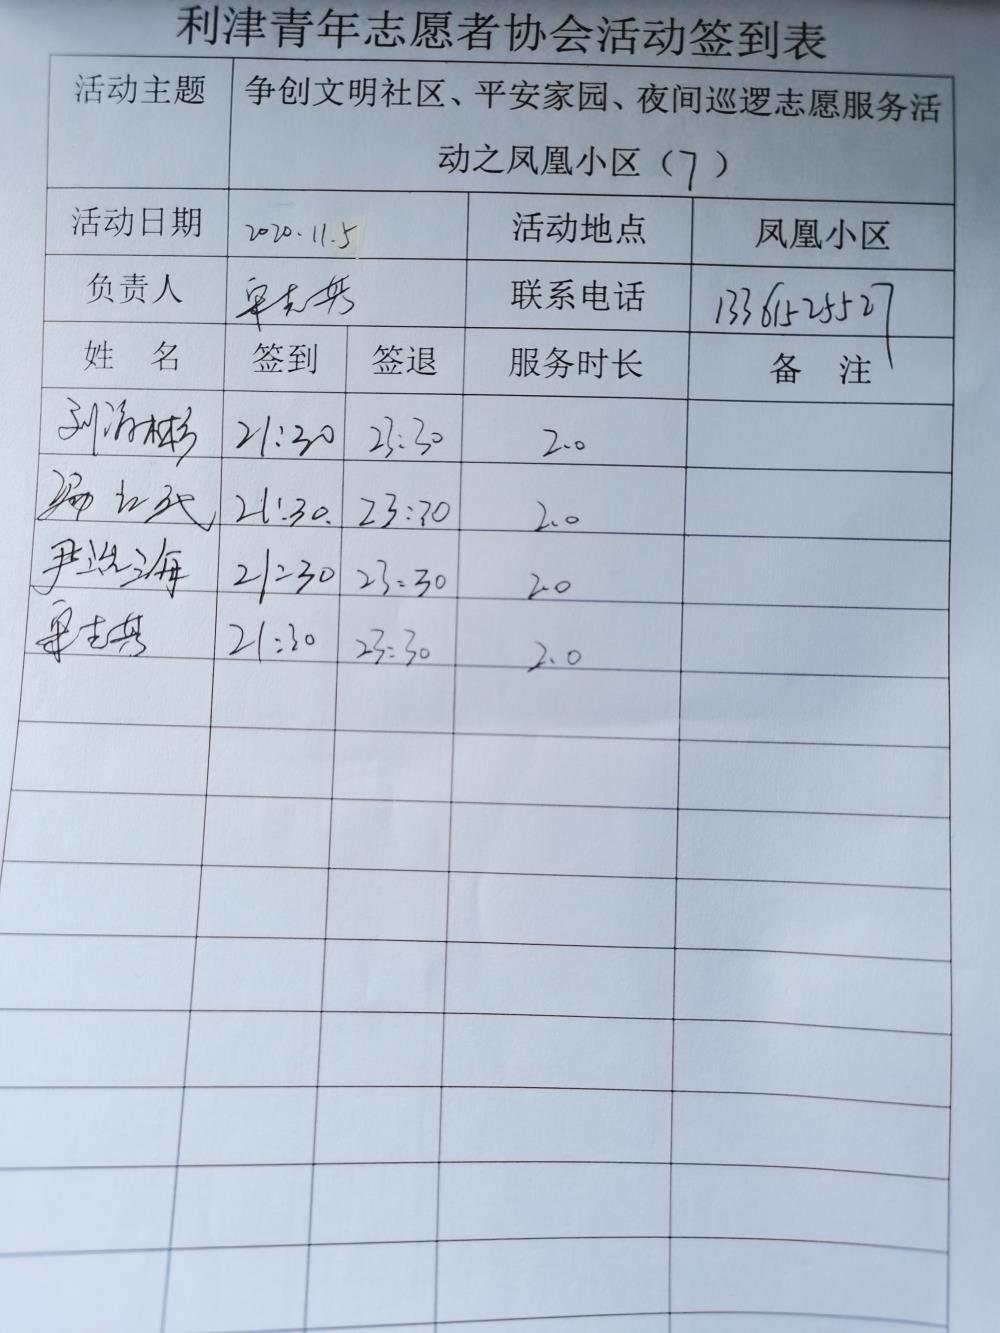 利津青年志愿者协会活动签到表
活动主题 争创文明社区、平安家园、夜间巡逻志愿服务活
动之凤凰小区（7）
活动日期 2020.11.5 活动地点 凤凰小区
负责人 联系电话 13361525527
姓 名 签到 签退 服务时长 备 注
刘 彬 21:30 23:30 2.0
21:30. 23:30 2.0
尹 海 21:30 23:30 2.0
21:30 23:30 2.0